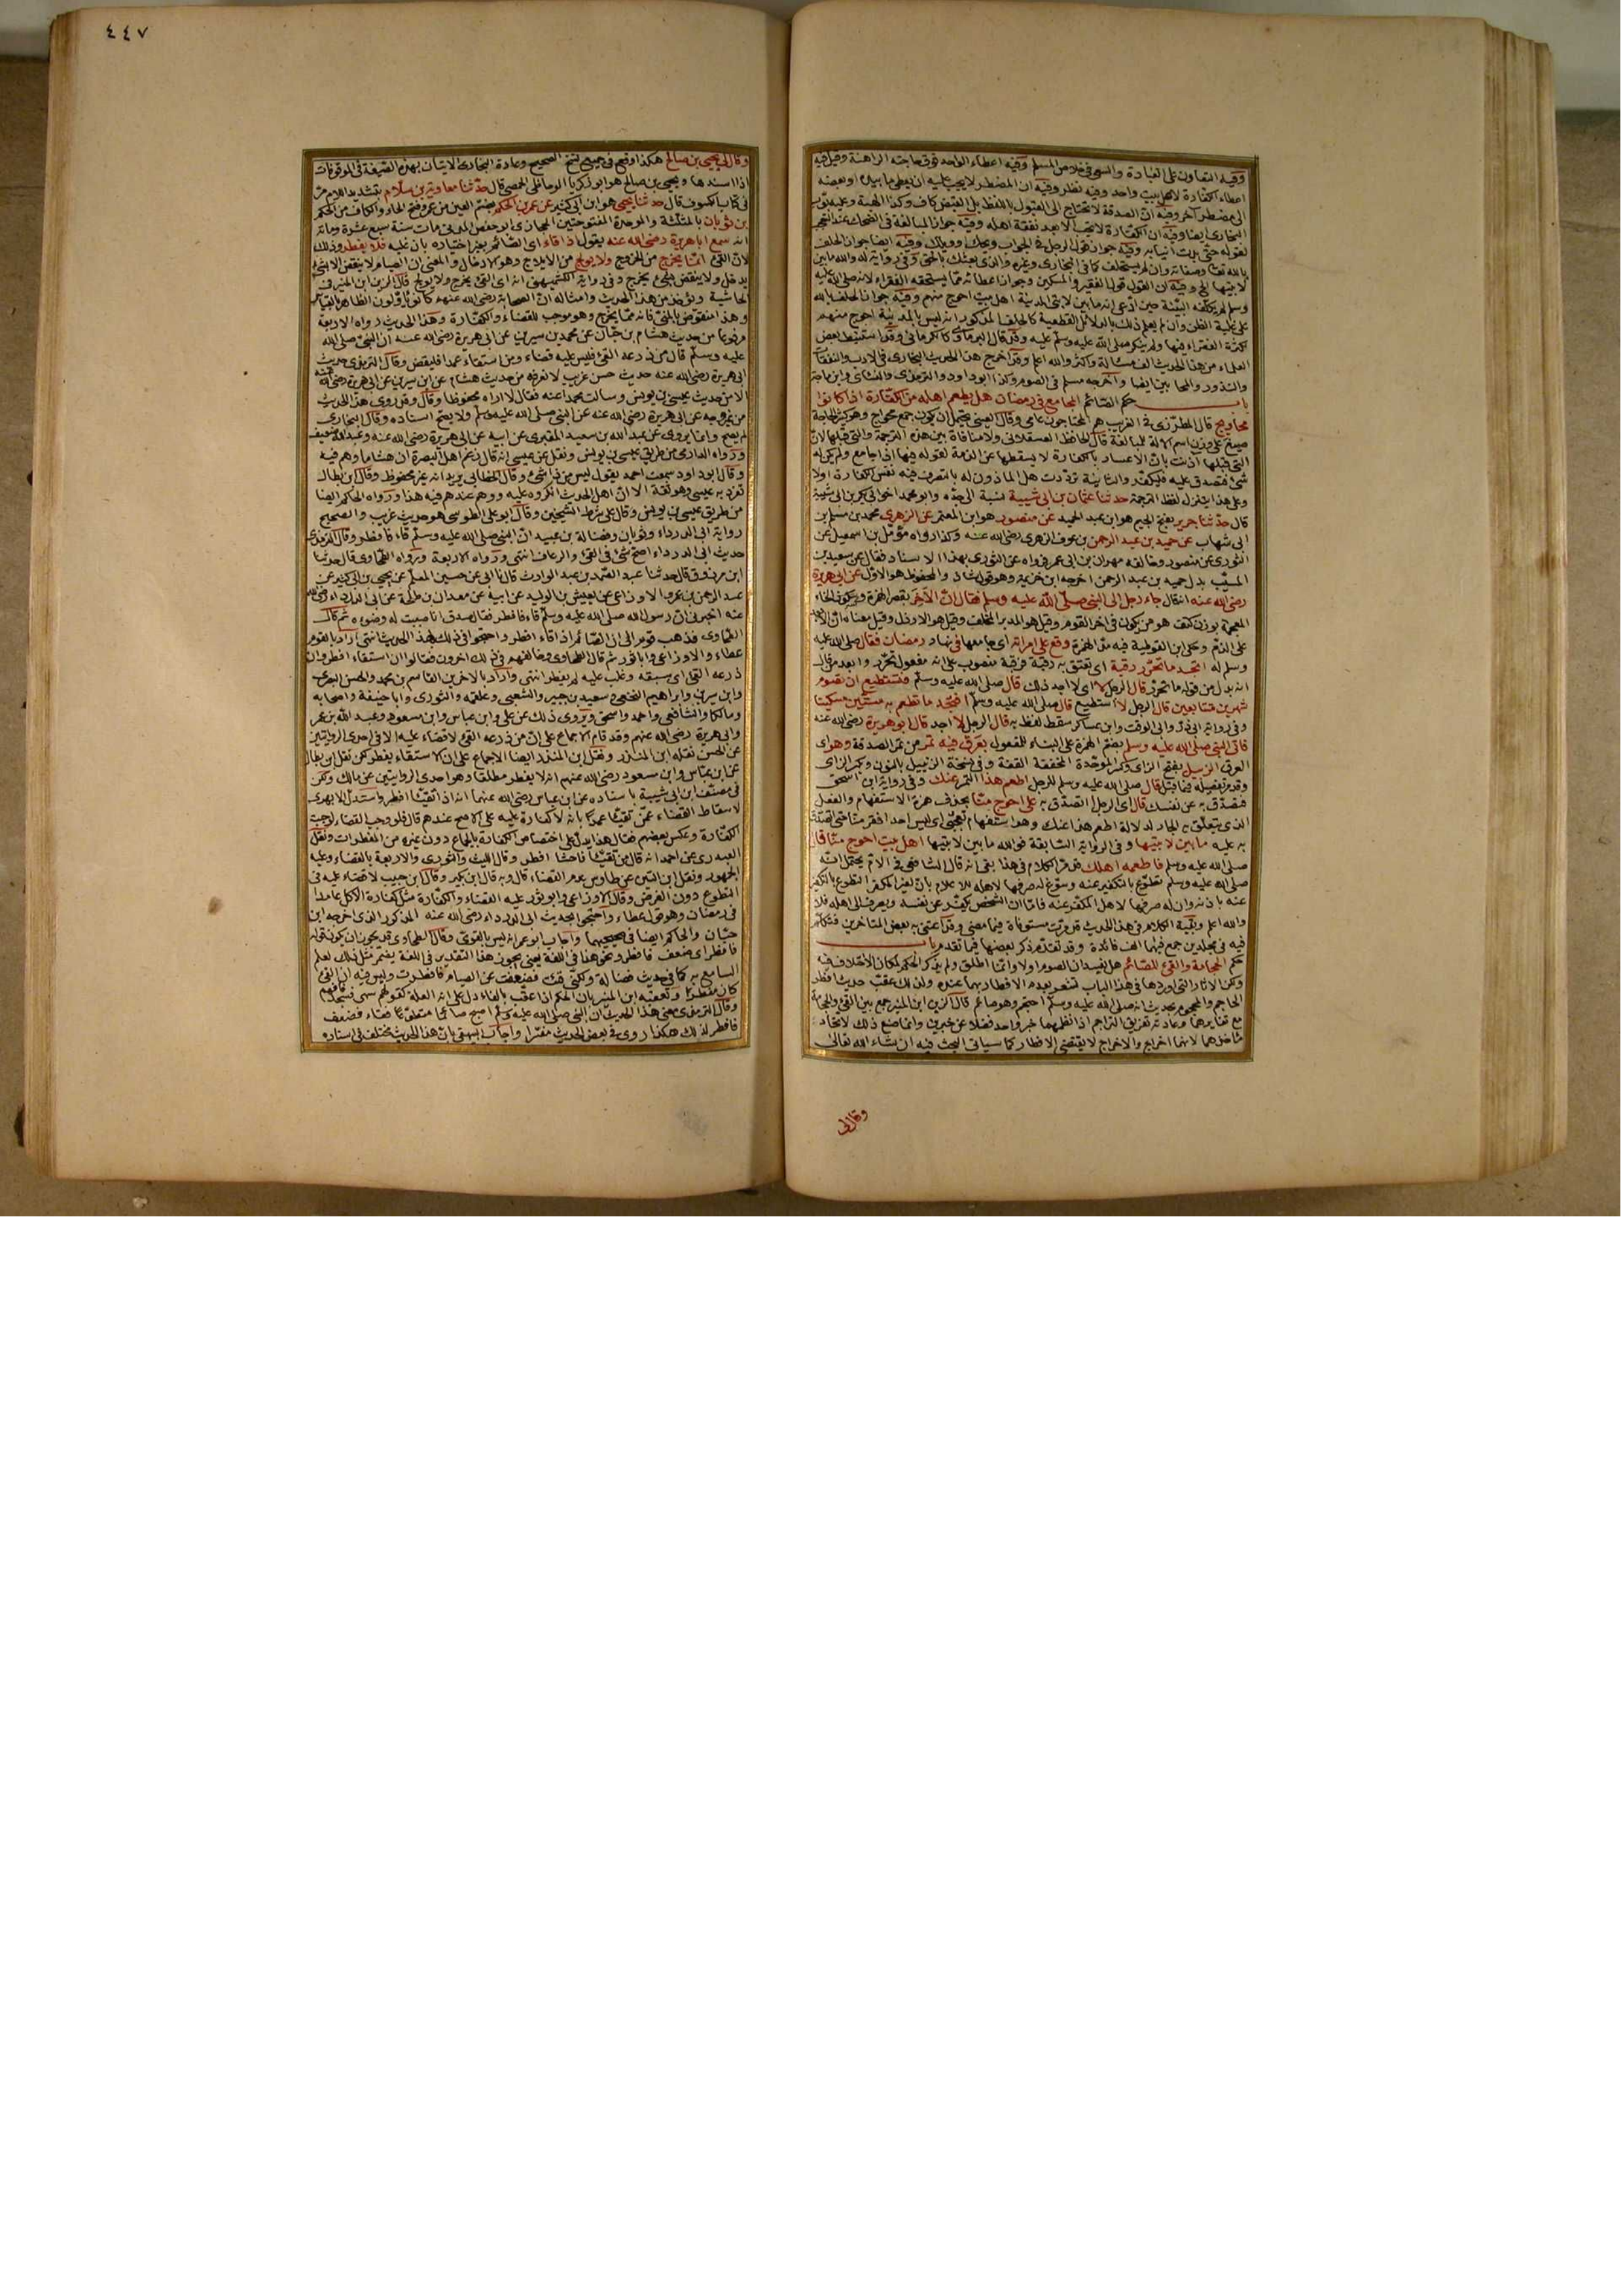 وفيه التعاون على العبادة والسعي في خلاص المسلم وفيه اعطاء الواحد فوق حاجته الراهنة
اعطاء الكفارة لاهل بيت واحد وفيه نظر وفيه ان المضطر لا يجب عليه ان يعطي ما بيده او بعضه
الى مضطر آخر وفيه ان الصدقة لا تحتاج الى القبول باللفظ بل القبض كاف وكذا الهبة وعليه
البخاري ايضا وفيه ان الكفارة لا تجب الا بعد نفقة اهله وفيه جواز المبالغة في الضحك عند التعجب
لقوله حتى بدت انيابه وفيه جواز قول الرجل في الجواب ويحك وويلك وفيه ايضا جواز الحلف
بالله تعالى وصفاته وان لم يستحلف كما في البخاري وغيره والذي بعثك بالحق وفي رواية له والله ما بين
لابتيها الخ وفيه ان القول قول الفقير والمسكين وجواز اعطائه مما يستحقه الفقراء لانه صلى الله عليه
وسلم لم يكلفه البينة حين ادعى انه ما بين لابتي المدينة اهل بيت احوج منهم وفيه جواز الحلف بالله
على غلبة الظن وان لم يعلم ذلك بالدلائل القطعية كالحلف المذكور انه ليس بالمدينة احوج منهم
لكثرة الفقراء فيها ولم ينكر صلى الله عليه وسلم عليه وقد قال البرماوي كالكرماني وقد استنبط بعض
العلماء من هذا الحديث الف مسألة واكثر والله اعلم وقد اخرج هذا الحديث البخاري في الادب والنفقات
والنذور والمحاربين ايضا واخرجه مسلم في الصوم وكذا ابو داود والترمذي والنسائي وابن ماجة
باب حكم الصائم المجامع في رمضان هل يطعم اهله من الكفارة اذا كانوا
محاويج قال المطرزي في المغرب هم المحتاجون عامي وقال العيني يحتمل ان يكون جمع محواج وهو كثير الحاجة
صيغ على وزن اسم الآلة للمبالغة قال الحافظ العسقلاني ولا منافاة بين هذه الترجمة والتي قبلها لان
التي قبلها آذنت بان الاعسار بالكفارة لا يسقطها عن الذمة لقوله فيها اذا جامع ولم يكن له
شيء فتصدق عليه فليكفر والثانية ترددت هل الماذون له بالتصرف فيه نفس الكفارة او لا
وعلى هذا يتنزل لفظ الترجمة حدثنا عثمان بن ابي شيبة نسبة الى جده وابو محمد اخوابي بكر بن ابي شيبة
قال حدثنا جرير بفتح الجيم هو ابن عبد الحميد عن منصور هو ابن المعتمر عن الزهري محمد بن مسلم بن
ابي شهاب عن حميد بن عبد الرحمن بن عوف الزهري رضي الله عنه وكذا رواه مؤمل بن اسمعيل عن
الثوري عن منصور وخالفه مهران بن ابي عمر فرواه عن الثوري بهذا الاسناد فقال عن سعيد بن
المسيب بدل حميد بن عبد الرحمن اخرجه ابن خزيمة وهو قول شاذ والمحفوظ هو الاول عن ابي هريرة
رضي الله عنه انه قال جاء رجل الى النبي صلى الله عليه وسلم فقال ان الاخر بقصر الهمزة وبكسر الخاء
المعجمة بوزن كتف هو من يكون في اخر القوم وقيل هو المدبر المتخلف وقيل هو الارذل وقيل معناه
على الذم وحكى ابن القوطية فيه مد الهمزة وقع على امراته اي جامعها في نهار رمضان فقال صلى الله عليه
وسلم له اتجد ما تحرر رقبة اي تعتق به رقبة فرقبة منصوب على انه مفعول تحرر
انه بدل من قوله ما تحرر قال الرجل لا اي لا اجد ذلك قال صلى الله عليه وسلم فتستطيع ان تصوم
شهرين متتابعين قال الرجل لا استطيع قال صلى الله عليه وسلم افتجد ما تطعم به ستين مسكينا
وفي رواية ابي ذر وابي الوقت وابن عساكر سقط لفظ به قال الرجل لا اجد قال ابو هريرة رضي الله عنه
فاتى النبي صلى الله عليه وسلم بضم الهمزة على البناء للمفعول بعرق فيه تمر من تمر الصدقة وهو اي
العرق الزبيل بفتح الزاي وكسر الموحدة المخففة القفة وفي نسخة الزنبيل بالنون وكسر الزاي
وقد مر تفصيله فيما قبل قال صلى الله عليه وسلم للرجل اطعم هذا التمر عنك وفي رواية ابن اسحق
فتصدق به عن نفسك قال اي الرجل اتصدق به على احوج منا بحذف همزة الاستفهام والفعل
الذي يتعلق به الجار لدلالة اطعم هذا عنك وهو استفهام تعجبي اي ليس احد افقر منا حتى اتصدق
به عليه ما بين لابتيها وفي الرواية السابقة فوالله ما بين لابتيها اهل بيت احوج منا قال
صلى الله عليه وسلم فاطعمه اهلك قد مر الكلام في هذا بقي انه قال الشافعي في الام يحتمل انه
صلى الله عليه وسلم تطوع بالتكفير عنه وسوغ له صرفها لاهله للاعلام بان لغير المكفر التطوع بالتكفير
عنه باذنه وان له صرفها لاهل المكفر عنه فاما ان الشخص يكفر عن نفسه ويصرف الى اهله فلا
والله اعلم وبقية الكلام في هذا الحديث قد مرت مستوفاة فيما مضى وقد اعتنى به بعض المتاخرين فتكلم
فيه في مجلدين جمع فيهما الف فائدة وقد تقدم ذكر بعضها فيما تقدم باب
حكم الحجامة والقيء للصائم هل يفسدان الصوم او لا وانما اطلق ولم يذكر الحكم لمكان الاختلاف فيه
ولكن الآثار التي اوردها في هذا الباب تشعر بعدم الافطار بهما عنده ولذلك عقب حديث افطر
الحاجم والمحجوم بحديث انه صلى الله عليه وسلم احتجم وهو صائم قال الزين ابن المنير جمع بين القيء والحجامة
مع تغايرهما وعادته تفريق التراجم اذا نظمهما خبر واحد فضلا عن خبرين وانما صنع ذلك لاتحاد
مأخذهما لانهما اخراج والاخراج لا يقتضي الافطار كما سياتي البحث فيه ان شاء الله تعالى
وقال لي
٤٤٧
وقال لي يحيى بن صالح هكذا وقع في جميع نسخ الصحيح وعادة البخاري الاتيان بهذه الصيغة في الموقوفات
اذا اسندها ويحيى بن صالح هو ابو زكريا الوحاظي الحمصي قال حدثنا معاوية بن سلام بتشديد اللام مر
في كتاب الكسوف قال حدثنا يحيى هو ابن ابي كثير عن عمر بن الحكم بضم العين من عمر وفتح الحاء والكاف من الحكم
بن ثوبان بالمثلثة والموحدة المفتوحتين الحجازي ابو حفص المدني مات سنة سبع عشرة ومائة
انه سمع ابا هريرة رضي الله عنه يقول اذا قاء اي الصائم بغير اختياره بان غلبه فلا يفطر وذلك
لان القيء انما يخرج من الخروج ولا يولج من الايلاج وهو الادخال والمعنى ان الصيام لا ينقض الا بشيء
يدخل ولا ينقض بشيء يخرج وفي رواية الكشميهني انه اي القيء يخرج ولا يولج قال الزين ابن المنير في
الحاشية ويؤخذ من هذا الحديث وامثاله ان الصحابة رضي الله عنهم كانوا يأولون الظاهر بالقياس
وهذا منقوض بالمني فانه مما يخرج وهو موجب للقضاء والكفارة وهذا الحديث رواه الاربعة
مرفوعا من حديث هشام بن حسان عن محمد بن سيرين عن ابي هريرة رضي الله عنه ان النبي صلى الله
عليه وسلم قال من ذرعه القيء فليس عليه قضاء ومن استقاء عمدا فليقض وقال الترمذي حديث
ابي هريرة رضي الله عنه حديث حسن غريب لا نعرفه من حديث هشام عن ابن سيرين عن ابي هريرة رضي الله عنه
الا من حديث عيسى بن يونس وسالت محمدا عنه فقال لا اراه محفوظا وقال وقد روي هذا الحديث
من غير وجه عن ابي هريرة رضي الله عنه عن النبي صلى الله عليه وسلم ولا يصح اسناده وقال البخاري
لم يصح وانما يروى عن عبد الله بن سعيد المقبري عن ابيه عن ابي هريرة رضي الله عنه وعبد الله ضعيف
ورواه الدارمي من طريق عيسى بن يونس ونقل عن عيسى انه قال زعم اهل البصرة ان هشاما وهم فيه
وقال ابو داود سمعت احمد يقول ليس من ذا شيء وقال الخطابي يريد انه غير محفوظ وقال ابن بطال
تفرد به عيسى وهو ثقة الا ان اهل الحديث انكروه عليه ووهم عندهم فيه هذا ورواه الحاكم ايضا
من طريق عيسى بن يونس وقال على شرط الشيخين وقال ابو علي الطوسي هو حديث غريب والصحيح
رواية ابي الدرداء وثوبان وفضالة بن عبيد ان النبي صلى الله عليه وسلم قاء فافطر وقال الترمذي
حديث ابي الدرداء اصح شيء في القيء والرعاف انتهى ورواه الاربعة ورواه الطحاوي قال حدثنا
ابن مرزوق قال حدثنا عبد الصمد بن عبد الوارث قال نا ابي عن حسين المعلم عن يحيى بن ابي كثير عن
عبد الرحمن بن عمرو الاوزاعي عن يعيش بن الوليد عن ابيه عن معدان بن طلحة عن ابي الدرداء رضي الله
عنه اخبر في ان رسول الله صلى الله عليه وسلم قاء فافطر فقال صدق انا صببت له وضوءه ثم قال
الطحاوي فذهب قوم الى ان الصائم اذا قاء افطر واحتجوا في ذلك بهذا الحديث انتهى واراد بالقوم
عطاء والاوزاعي وابا ثور ثم قال الطحاوي وخالفهم في ذلك اخرون فقالوا ان استقاء افطر وان
ذرعه القيء اي سبقه وغلب عليه لم يفطر انتهى واراد بالاخرين القاسم بن محمد والحسن البصري
وابن سيرين وابراهيم النخعي وسعيد بن جبير والشعبي وعلقمة والثوري وابا حنيفة واصحابه
ومالكا والشافعي واحمد واسحق ويروى ذلك عن علي وابن عباس وابن مسعود وعبد الله بن عمر
وابي هريرة رضي الله عنهم وقد قام الاجماع على ان من ذرعه القيء لا قضاء عليه الا في احدى الروايتين
عن الحسن نقله ابن المنذر ونقل ابن المنذر ايضا الاجماع على ان الاستقاء يفطر لكن نقل ابن بطال
عن ابن عباس وابن مسعود رضي الله عنهم انه لا يفطر مطلقا وهو احدى الروايتين عن مالك ولكن
في مصنف ابن ابي شيبة باسناده عن ابن عباس رضي الله عنهما انه اذا تقيأ افطر واستدل الابهري
لاسقاط القضاء عمن تقيأ عمدا بانه لا كفارة عليه على الاصح عندهم قال فلو وجب القضاء لوجبت
الكفارة وعكس بعضهم فقال هذا يدل على اختصاص الكفارة بالجماع دون غيره من المفطرات ونقل
العبدري عن احمد انه قال من تقيأ فاحشا افطر وقال الليث والثوري والاربعة بالقضاء وعليه
الجمهور ونقل ابن التين عن طاوس عدم القضاء قال وبه قال ابن بكير وقال ابن حبيب لا قضاء عليه في
التطوع دون الفرض وقال الاوزاعي وابو ثور عليه القضاء والكفارة مثل كفارة الاكل عامدا
في رمضان وهو قول عطاء واحتجوا بحديث ابي الدرداء رضي الله عنه المذكور الذي اخرجه ابن
حبان والحاكم ايضا في صحيحيهما واجاب ابو عمر انه ليس بالقوي وقال الطحاوي قد يجوز ان يكون قوله
فافطر اي ضعف فافطر ويجوز هذا في اللغة يعني يجوز هذا التقدير في اللغة يضمر مثل ذلك لعلم
السامع به كما في حديث فضالة ولكني قئت فضعفت عن الصيام فافطرت وليس فيه ان القيء
كان مفطرا وتعقبه ابن المنير بان الحكم اذا عقب بالفاء دل على انه العلة كقولهم سهى فسجد فافهم
وقال الترمذي معنى هذا الحديث ان النبي صلى الله عليه وسلم اصبح صائما متطوعا فقاء فضعف
فافطر لذلك هكذا روي في بعض الحديث مفسرا واجاب البيهقي بان هذا الحديث مختلف في اسناده